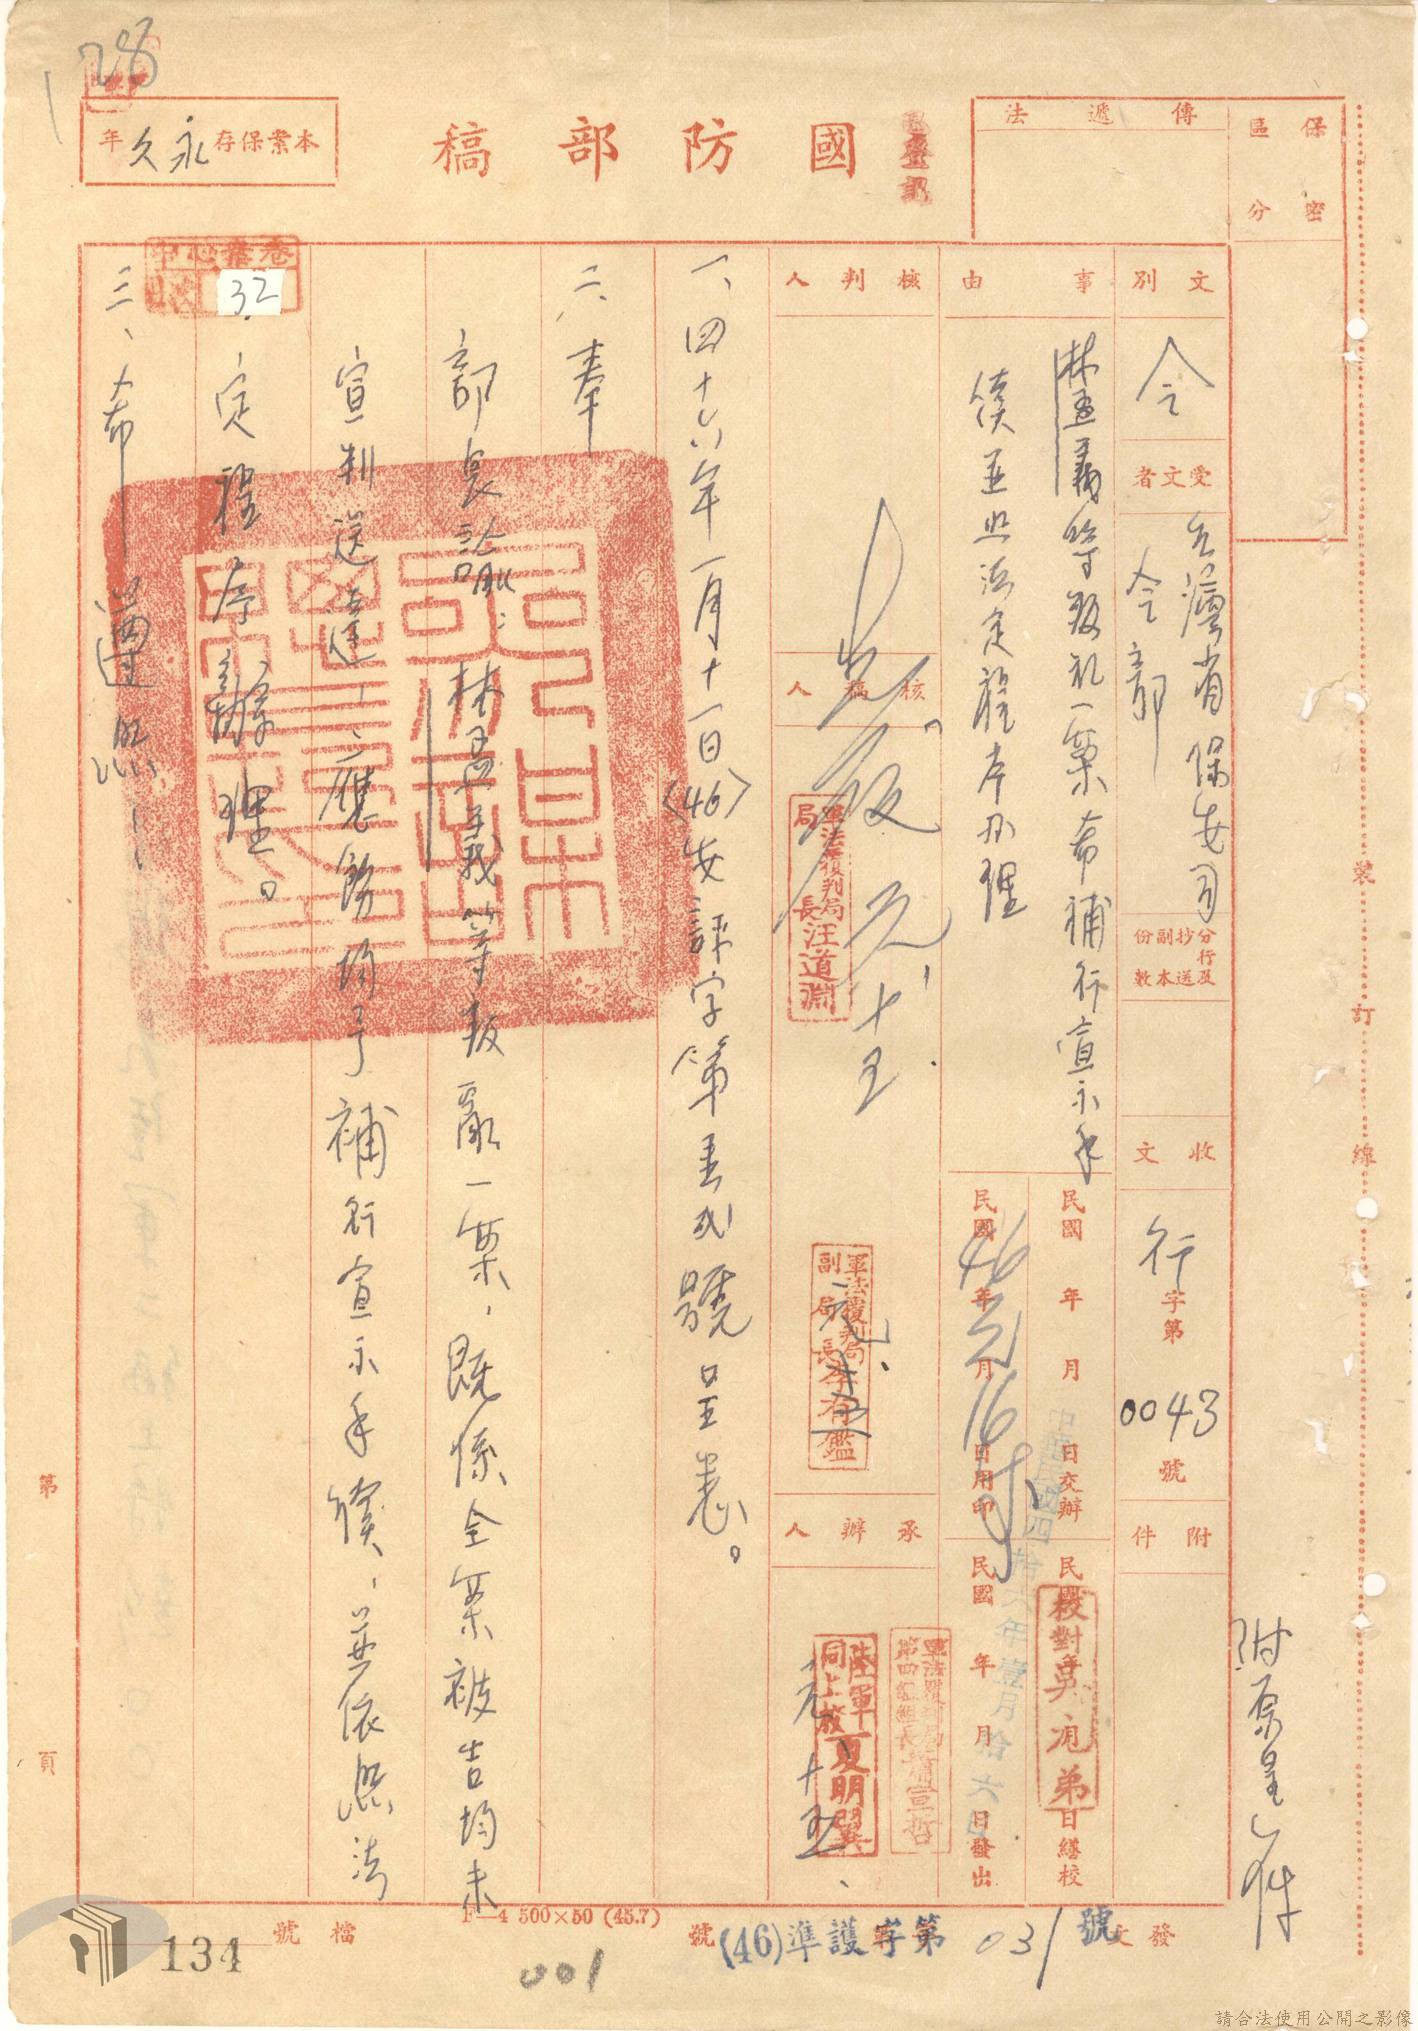 28
國防部稿
本案保存永久年
傳遞法
保密
區分
文別
令
受文者
台灣省保安司
令部
分行及抄送副本份數
收文
行字第0043號
附件
附原呈一件
事由
林孟義等叛亂一案希補行宣示手
續並照法定程序辦理
民國 年 月 日交辦
民國46年元月16日用印
民國 年 月 日繕校
民國 年 月 日發出
中華民國四十六年壹月拾六日
校對吳
弟
核判人
核稿人
承辦人
軍法覆判局
局長汪道淵
元、十五
軍法覆判局
副局長李有鑑
軍法覆判局
第四組組長
宣哲
陸軍
同上校夏明翼
元、十五、
一、四十六年一月十一日(46)安評字第壹貳號呈悉。
二、奉
部長諭:林孟義等叛亂一案,既係全案被告均未
宣判送達,應飭均予補行宣示手續,並依照法
定程序辦理。
三、希遵照!
中心卷
32
裝
訂
線
第
頁
發文(46)準護字第031號
檔號
134
F—4 500×50 (45.7)
001
請合法使用公開之影像